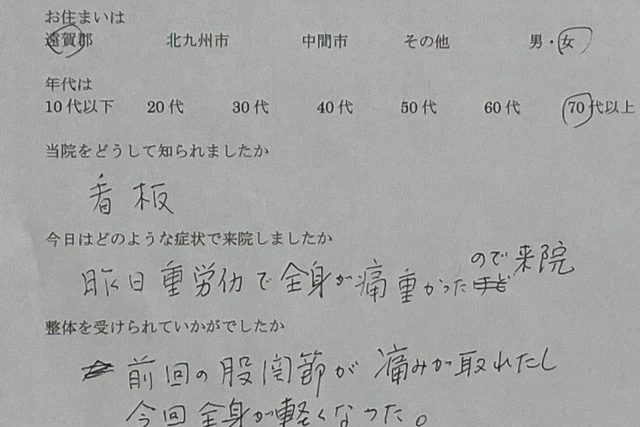 お住まいは
遠賀郡 北九州市 中間市 その他 男・女
年代は
10代以下 20代 30代 40代 50代 60代 70代以上
当院をどうして知られましたか
看板
今日はどのような症状で来院しましたか
昨日重労仂で全身が痛重かったので来院
整体を受けられていかがでしたか
前回の股関節が痛みが取れたし
今回全身が軽くなった。